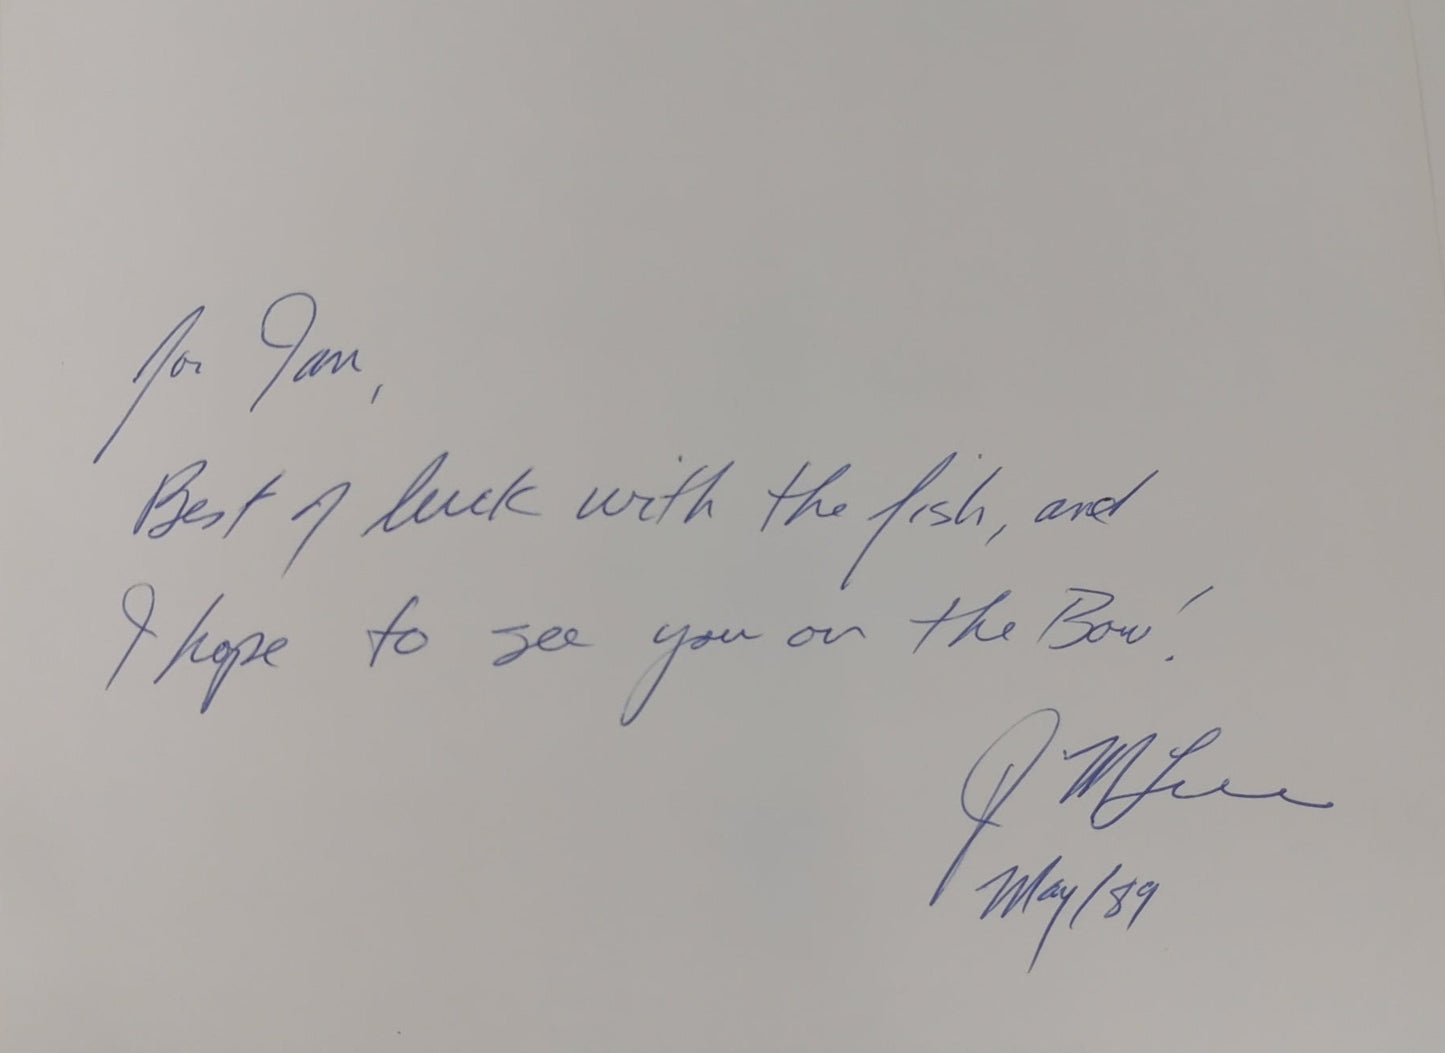 For Ian,
Best of luck with the fish, and
I hope to see you on the Bow!
J
May/89